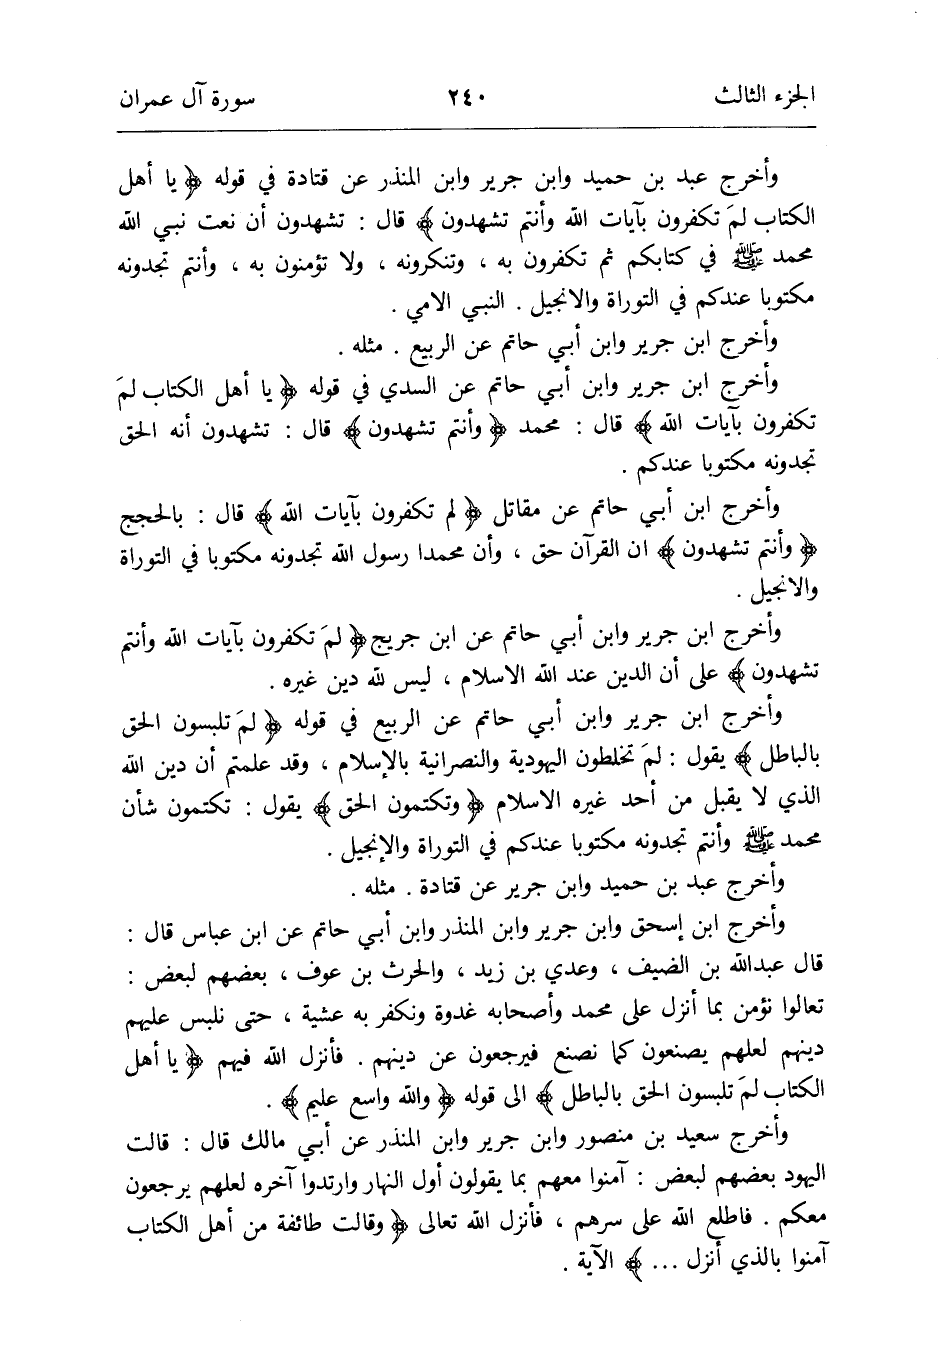 الجزء الثالث ٢٤٠ سورة آل عمران
وأخرج عبد بن حميد وابن جرير وابن المنذر عن قتادة في قوله ﴿ يا أهل
الكتاب لمَ تكفرون بآيات الله وأنتم تشهدون ﴾ قال : تشهدون أن نعت نبي الله
محمد ﷺ في كتابكم ثم تكفرون به ، وتنكرونه ، ولا تؤمنون به ، وأنتم تجدونه
مكتوبا عندكم في التوراة والانجيل . النبي الامي .
وأخرج ابن جرير وابن أبي حاتم عن الربيع . مثله .
وأخرج ابن جرير وابن أبي حاتم عن السدي في قوله ﴿ يا أهل الكتاب لمَ
تكفرون بآيات الله ﴾ قال : محمد ﴿ وأنتم تشهدون ﴾ قال : تشهدون أنه الحق
تجدونه مكتوبا عندكم .
وأخرج ابن أبي حاتم عن مقاتل ﴿ لم تكفرون بآيات الله ﴾ قال : بالحجج
﴿ وأنتم تشهدون ﴾ ان القرآن حق ، وأن محمدا رسول الله تجدونه مكتوبا في التوراة
والانجيل .
وأخرج ابن جرير وابن أبي حاتم عن ابن جريج ﴿ لمَ تكفرون بآيات الله وأنتم
تشهدون ﴾ على أن الدين عند الله الاسلام ، ليس لله دين غيره .
وأخرج ابن جرير وابن أبي حاتم عن الربيع في قوله ﴿ لمَ تلبسون الحق
بالباطل ﴾ يقول : لمَ تخلطون اليهودية والنصرانية بالإسلام ، وقد علمتم أن دين الله
الذي لا يقبل من أحد غيره الاسلام ﴿ وتكتمون الحق ﴾ يقول : تكتمون شأن
محمد ﷺ وأنتم تجدونه مكتوبا عندكم في التوراة والإنجيل .
وأخرج عبد بن حميد وابن جرير عن قتادة . مثله .
وأخرج ابن إسحق وابن جرير وابن المنذر وابن أبي حاتم عن ابن عباس قال :
قال عبدالله بن الضيف ، وعدي بن زيد ، والحرث بن عوف ، بعضهم لبعض :
تعالوا نؤمن بما أنزل على محمد وأصحابه غدوة ونكفر به عشية ، حتى نلبس عليهم
دينهم لعلهم يصنعون كما نصنع فيرجعون عن دينهم . فأنزل الله فيهم ﴿ يا أهل
الكتاب لمَ تلبسون الحق بالباطل ﴾ الى قوله ﴿ والله واسع عليم ﴾ .
وأخرج سعيد بن منصور وابن جرير وابن المنذر عن أبي مالك قال : قالت
اليهود بعضهم لبعض : آمنوا معهم بما يقولون أول النهار وارتدوا آخره لعلهم يرجعون
معكم . فاطلع الله على سرهم ، فأنزل الله تعالى ﴿ وقالت طائفة من أهل الكتاب
آمنوا بالذي أنزل ... ﴾ الآية .